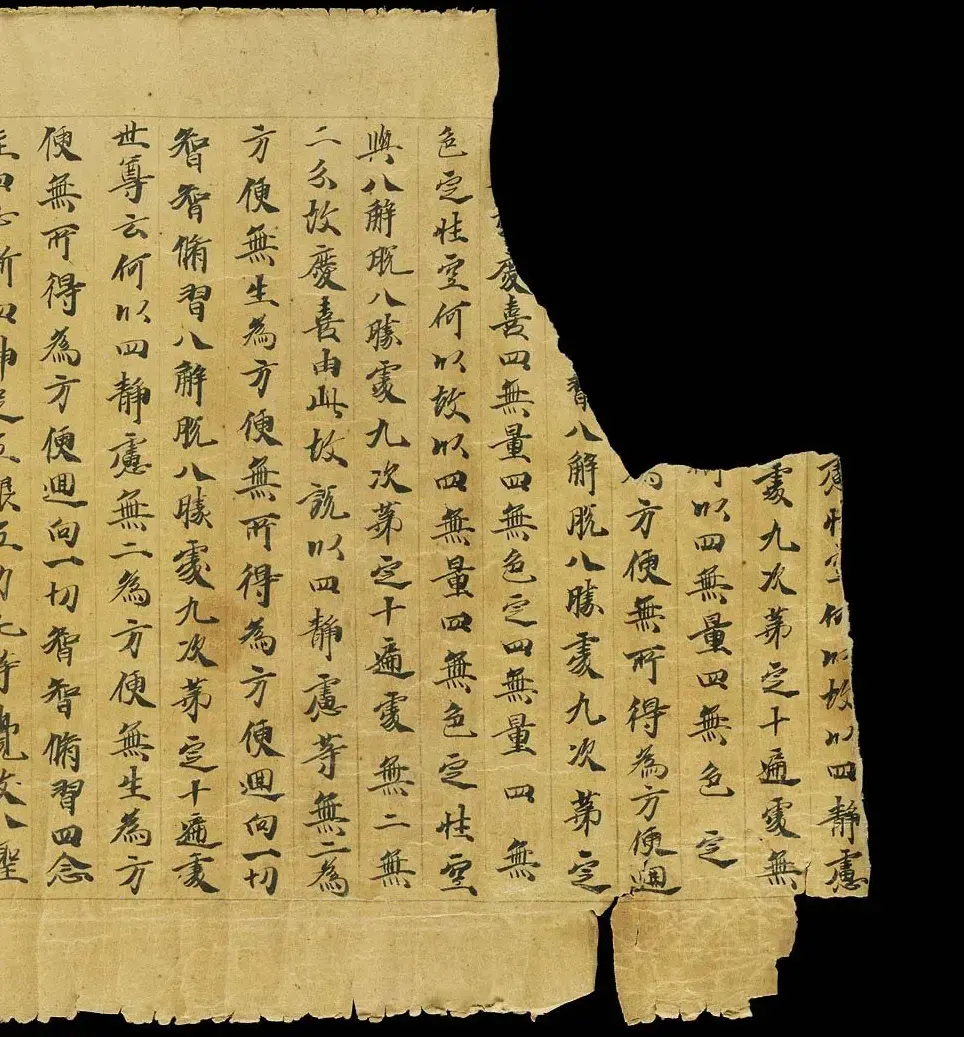 慮性空何以故以四靜慮
處九次第定十遍處無
何以四無量四無色定
為方便無所得為方便迴
習八解脫八勝處九次第定
慶喜四無量四無色定四無量四無
色定性空何以故以四無量四無色定性空
與八解脫八勝處九次第定十遍處無二無
二分故慶喜由此故說以四靜慮等無二為
方便無生為方便無所得為方便迴向一切
智智脩習八解脫八勝處九次第定十遍處
世尊云何以四靜慮無二為方便無生為方
便無所得為方便迴向一切智智脩習四念
住四正斷四神足五根五力七等覺支八聖